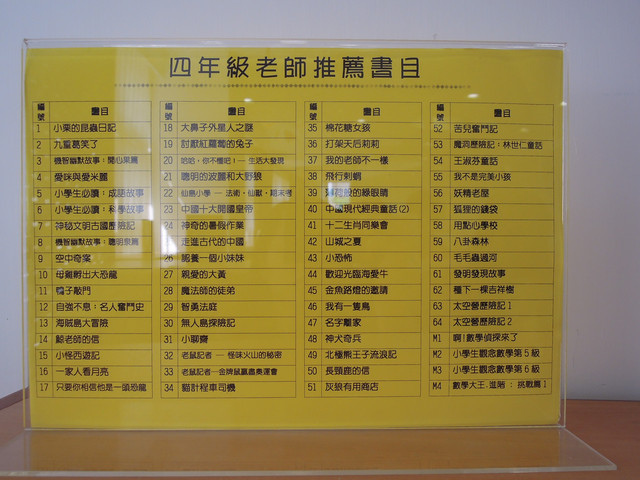 四年級老師推薦書目
編號 書目
1 小栗的昆蟲日記
2 九重葛笑了
3 機智幽默故事：開心果篇
4 愛咪與愛米麗
5 小學生必讀：成語故事
6 小學生必讀：科學故事
7 神秘文明古國歷險記
8 機智幽默故事：聰明泉篇
9 空中奇案
10 母雞孵出大恐龍
11 子敲門
12 自強不息：名人奮鬥史
13 海底島大冒險
14 鯨老師的信
15 小怪西遊記
16 一家人看月亮
17 只要你相信他是一頭恐龍
編號 書目
18 大鼻子外星人之謎
19 討厭紅蘿蔔的兔子
20 哈哈，你不懂吧！─ 生活大發現
21 聰明的波麗和大野狼
22 仙島小學 ─ 法術，仙獸，期末考
23 中國十大開國皇帝
24 神奇的暑假作業
25 走進古代的中國
26 認養一個小妹妹
27 親愛的大黃
28 魔法師的徒弟
29 智勇法庭
30 無人島探險記
31 小聊齋
32 老鼠記者 ─ 怪味火山的秘密
33 老鼠記者─金牌鼠贏蟲奧運會
34 貓計程車司機
編號 書目
35 棉花糖女孩
36 打架天后莉莉
37 我的老師不一樣
38 飛行刺蝟
39 的綠眼睛
40 中國現代經典童話(2)
41 十二生肖同樂會
42 山城之夏
43 小恐怖
44 歡迎光臨海愛牛
45 金魚路燈的邀請
46 我有一隻鳥
47 名字離家
48 神犬奇兵
49 北極熊王子流浪記
50 長頸鹿的信
51 灰狼有用商店
編號 書目
52 苦兒奮鬥記
53 魔洞歷險記：林世仁童話
54 王淑芬童話
55 我不是完美小孩
56 妖精老屋
57 狐狸的錢袋
58 用點心學校
59 八卦森林
60 毛毛蟲過河
61 發明發現故事
62 種下一棵吉祥樹
63 太空營歷險記1
64 太空營歷險記2
M1 啊!數學偵探來了
M2 小學生觀念數學第5級
M3 小學生觀念數學第6級
M4 數學大王.進階：挑戰篇1